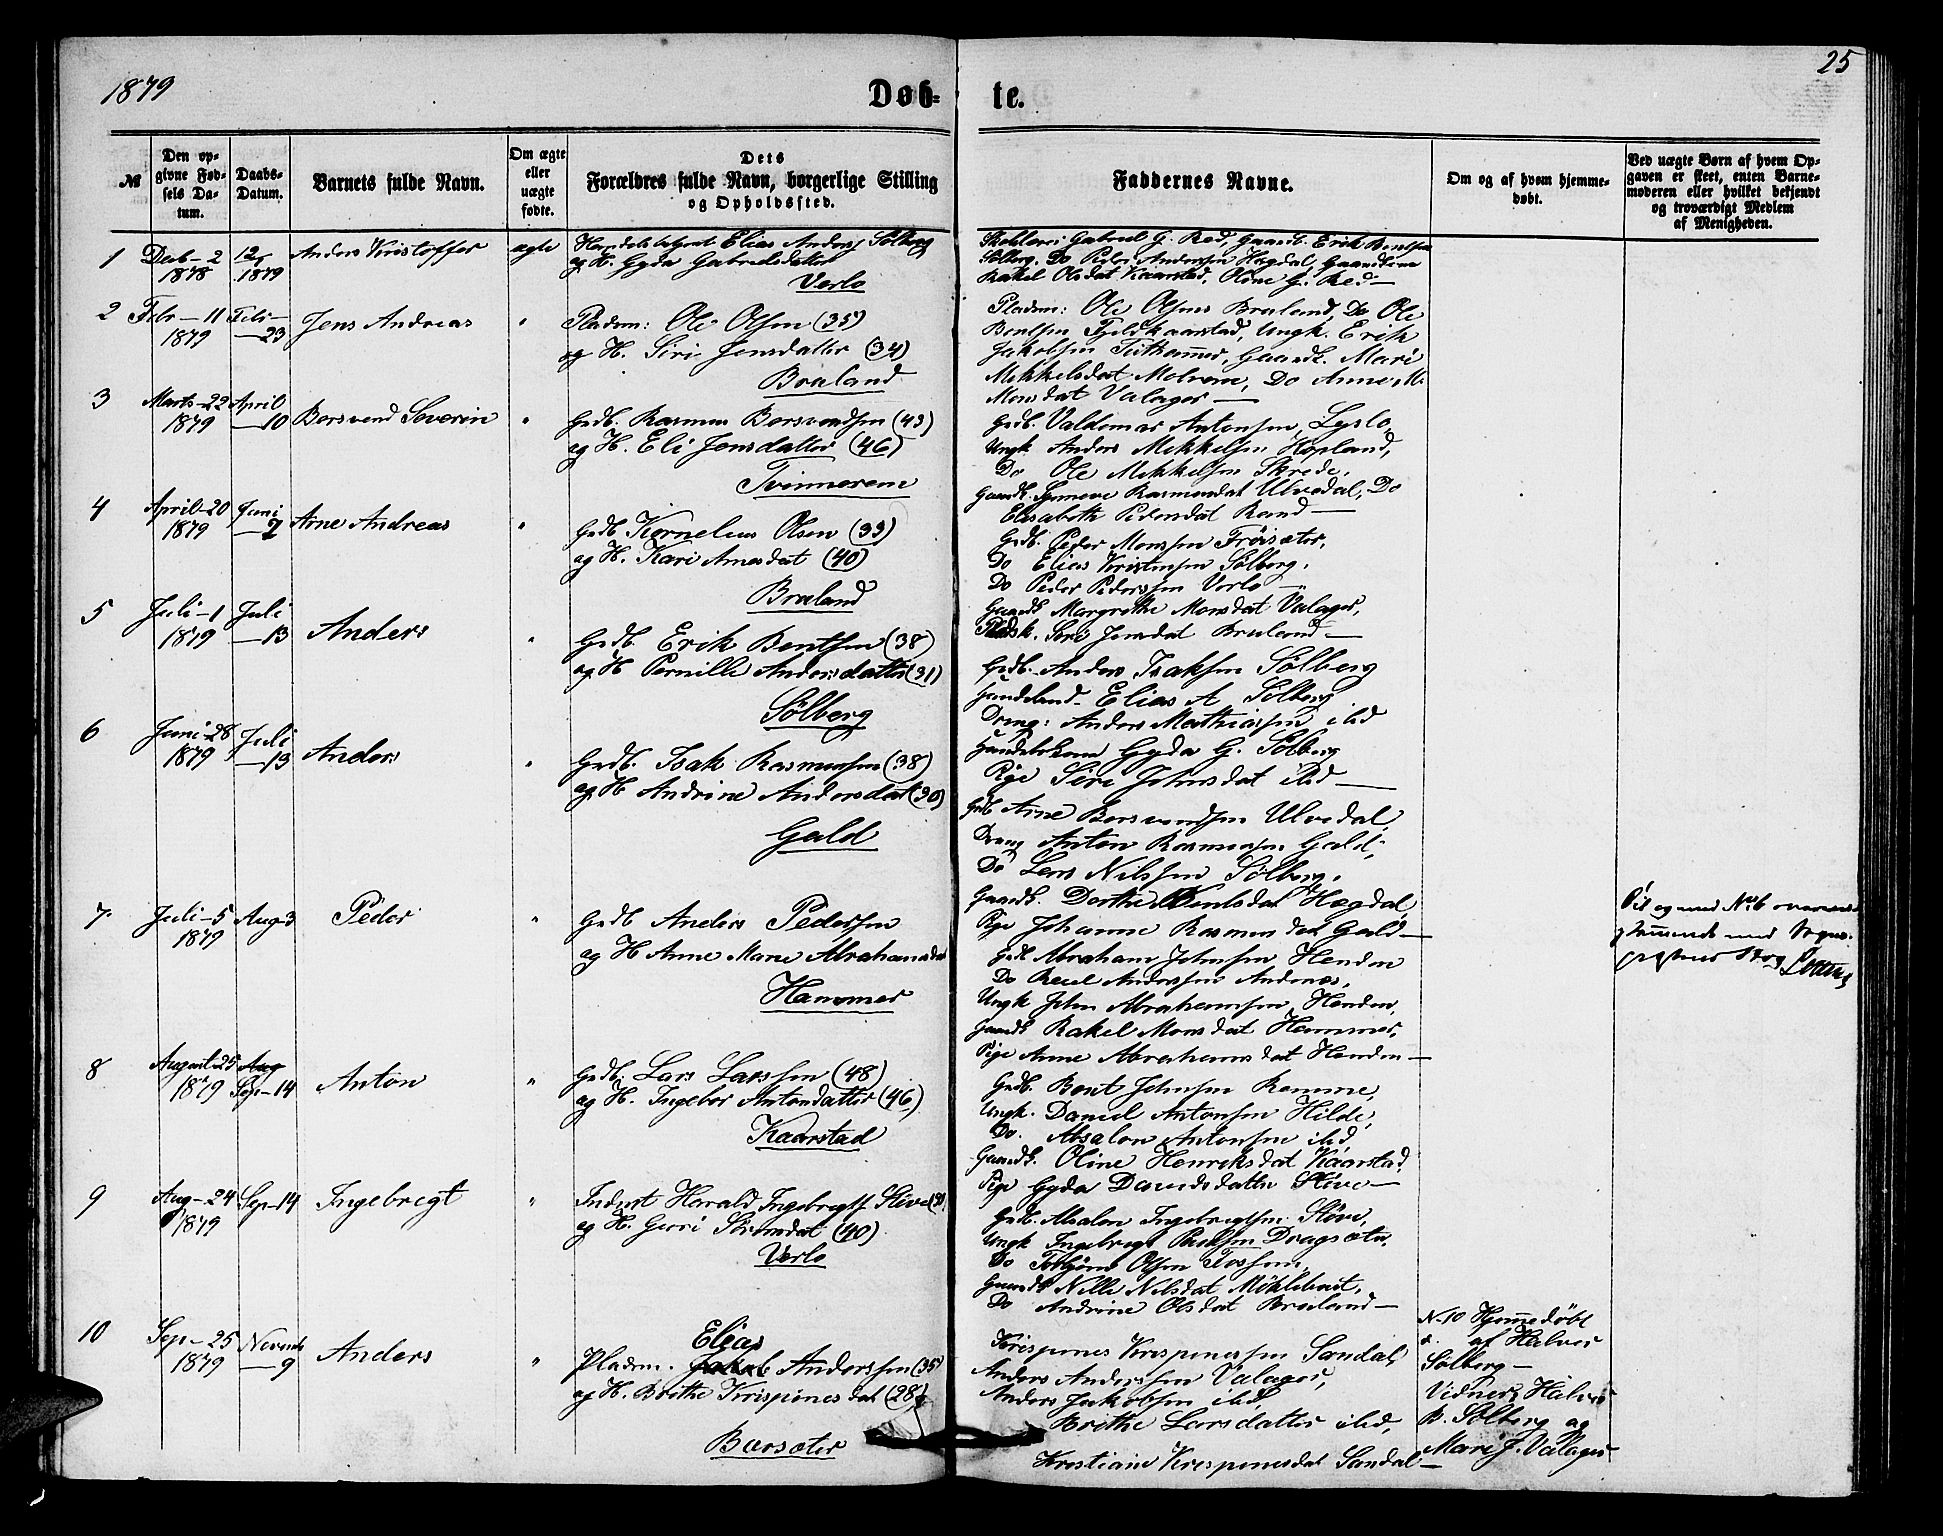 1879
Døb-
te.
25
№
Den op-
givne Fød-
sels Da-
tum.
Daabs-
Datum.
Barnets fulde Navn.
Om ægte
eller
uægte
fødte.
Dets
Forældres fulde Navn, borgerlige Stilling
og Opholdssted.
Faddernes Navne.
Om og af hvem hjemme-
døbt.
Ved uægte Børn af hvem Op-
gaven er skeet, enten Barne-
moderen eller hvilket bekjendt
og troværdigt Medlem
af Menigheden.
1
Decb-2
1878
1879
Anders Kristoffer
ægte
Elias Anders Sølberg
og H. Gyda Gabrielsdatter
Verlo
Gabriel G. Red, Gaardb. Erik Bentsen
Sølberg, Do Peder Anderssen Hagdal, Gaardkone
Rakel Olsdat Kaarstad, Oline G. Red—
2
Febr-11
1879
Febr-
—23
Jens Andreas
"
Pladsm: Ole Olsen (35)
og H. Siri Jensdatter (34)
Braland
Pladsm: Ole Olsen Braland, Do Ole
Bentsen Fjeldkaarstad, Ungk. Erik
Jakobsen Tuthammer, Gaardk. Mari
Mikkelsdat Molvene, Do Anne M.
Monsdat Valager —
3
Marts-22
1879
April
—10
Borsvend Severin
"
Grdb. Rasmus Borsvendsen (43)
og H. Eli Jensdatter (46)
Tvinnerem
Grdb. Valdemar Antonsen, Lyslo,
Ungk Anders Mikkelsen Hopland,
Do Ole Mikkelsen Skrede,
Gaardk. Synneve Rasmusdat Ulvedal, Do
Elisabeth Pedersdat Rand —
4
April-20
1879
Juni
—2
Arne Andreas
"
Grdb Kornelius Olsen (33)
og H. Kari Arnesdat (40)
Braland
Grdb. Peder Monssen Frøisæter,
Do Elias Kristensen Sølberg,
Do Peder Pederssen Verlo —
Gaardk Margrethe Monsdat Valager,
Pladsk. Siri Jensdat Braland —
5
Juli-1
1879
Juli
—13
Anders
"
Grdb. Erik Bentsen (38)
og H Pernille Andersdatter (31)
Sølberg
Grdb. Anders Isaksen Sølberg
Elias A Sølberg
Dreng: Anders Mathiassen ibd
Handelskone Gyda G. Sølberg
Pige Siri Johnsdat ibd —
6
Juni-28
1879
Juli
—13
Anders
"
Grdb. Isak Rasmussen (38)
og H Andrine Andersdat (30)
Gald
Grdb Arne Borsvendsen Ulvedal,
Dreng Anton Rasmussen Gald,
Do Lars Nilssen Sølberg,
Gaardk. Dorthe Bentsdat Hægdal,
Pige Johanne Rasmusdat Gald —
7
Juli-5
1879
Aug-3
Peder
"
Grdb Anders Pedersen
og H Anne Marie Abrahamsdat
Hammer
Grdb Abraham Johnsen Henden
Do Anderssen Andenæs,
Ungk John Abrahamsen, Henden,
Gaardk Rakel Monsdat Hammer,
Pige Anne Abrahamsdat Henden —
Til og med No 6 overens-
stemmende med Sogne-
præstens Bog
8
August-25
1879
Aug
Sep-14
Anton
"
Grdb. Lars Larssen (48)
og H. Ingebor Antonsdatter (46)
Kaarstad
Grdb. Bent Johnsen Ramme,
Ungk. Daniel Antonsen Hilde,
Do. Absalon Antonsen ibd,
Gaardk. Oline Henriksdat Kaarstad
Pige Gyda Davidsdatter Støve —
9
Aug-24
1879
Sep-14
Ingebrigt
"
Inderst Harald Ingebrigts. Støve
og H. Guri Simondat (40)
Verlo
Grdb. Absalon Ingebrigtsen Støve,
Ungk Ingebrigt Paulsen Dragsæter
Do Torbjørn Olsen Fosson,
Gaardk Nille Nilsdat Møklebust,
Do Andrine Olsdat Braland —
10
Sep-25
1879
Novemb
—9
Anders
"
Elias
Pladsm. Jakob Anderssen (35)
og H. Brithe Krispinesdat (28)
Barsæter
Krispines Krispinessen Sandal,
Anders Anderssen Valager,
Anders Jakobsen ibd,
Brithe Larsdatter ibd,
Kristiane Krispinesdat Sandal —
N-10 Hjemmedøbt
af Halvor
Sølberg —
Vidner, Halvor
B. Sølberg og
Mari J. Valager